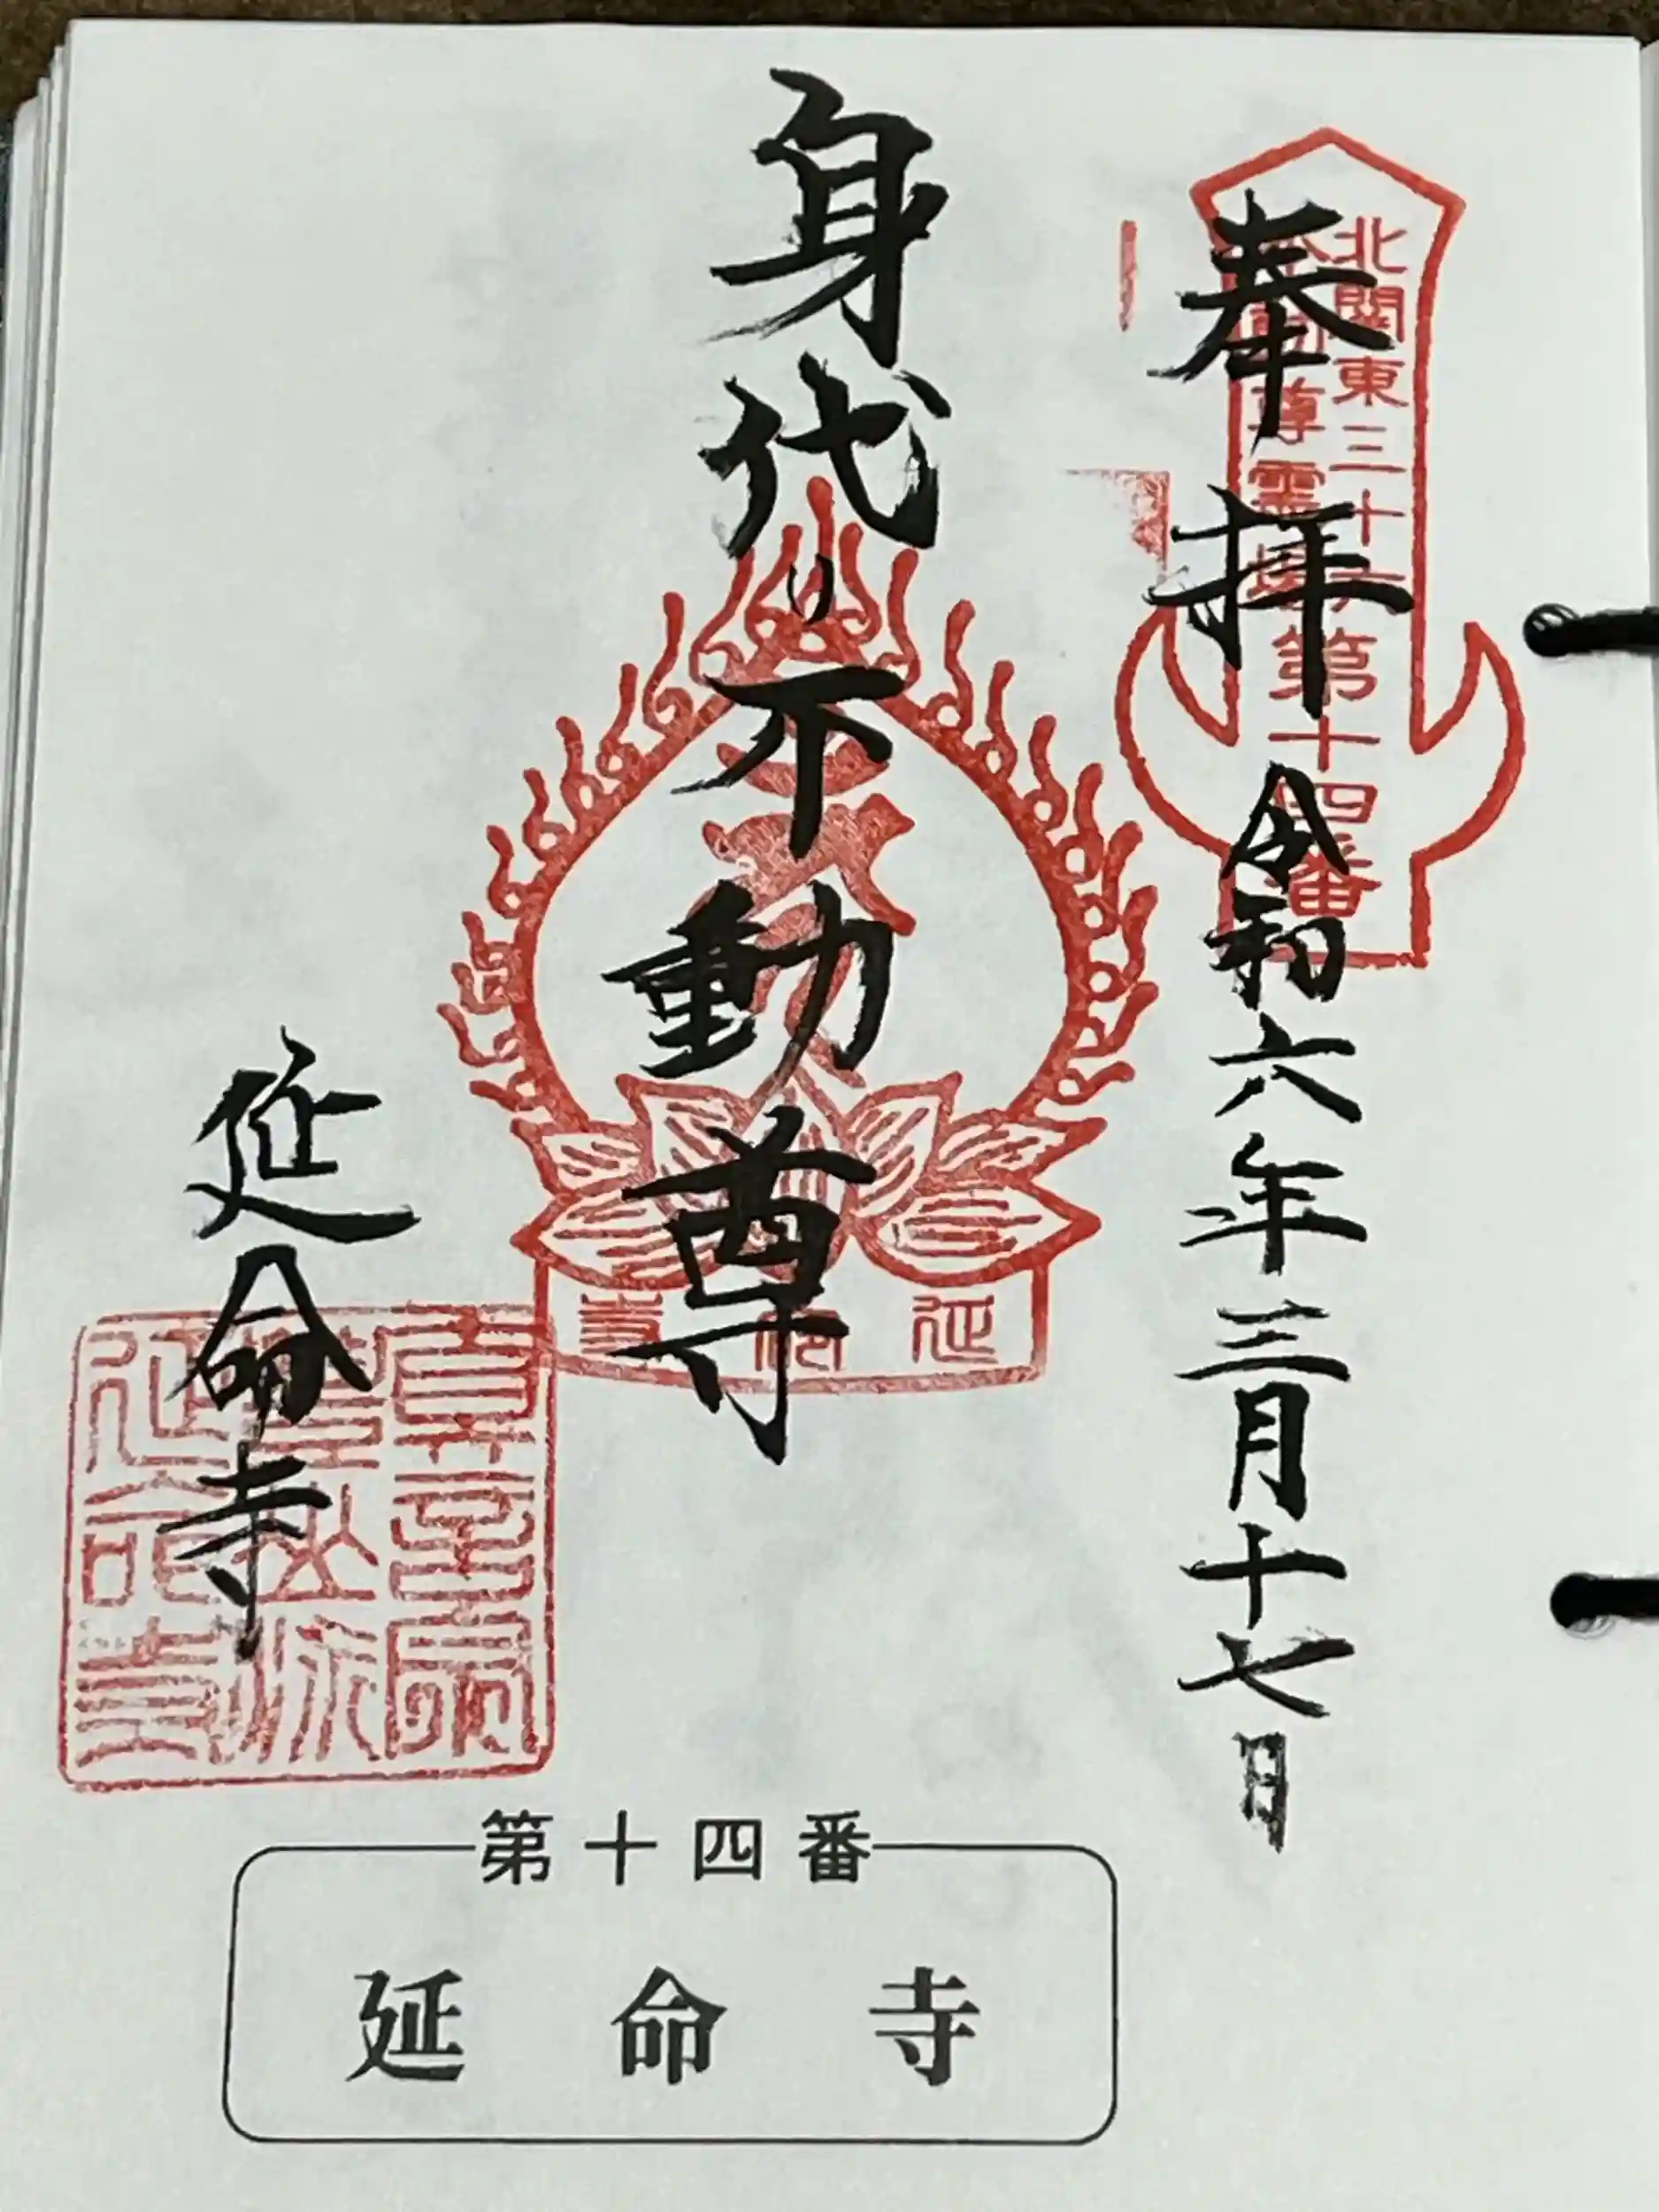 奉拝 令和六年三月十七日
北関東三十六
不動尊霊場第十四番
身代り不動尊
延命寺
延命寺
第十四番
延命寺